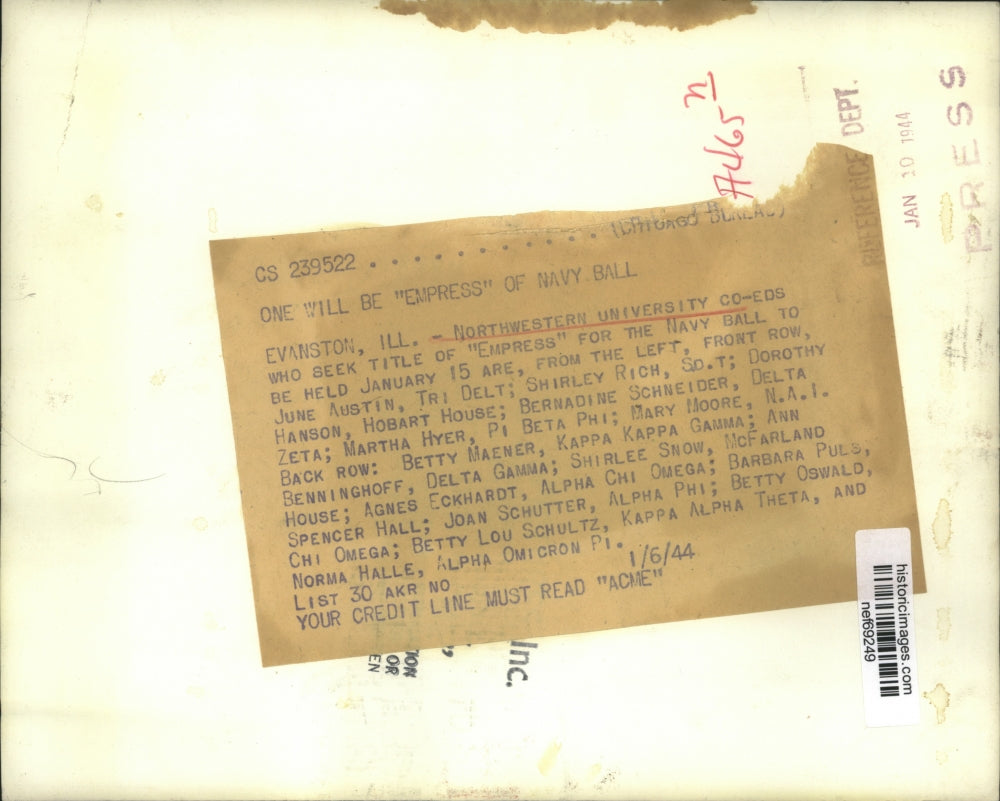 A465 n
REFERENCE DEPT.
JAN 10 1944
PRESS
(CHICAGO BUREAU)
CS 239522 . . . . . . . . . . .
ONE WILL BE "EMPRESS" OF NAVY BALL
EVANSTON, ILL. - NORTHWESTERN UNIVERSITY CO-EDS
WHO SEEK TITLE OF "EMPRESS" FOR THE NAVY BALL TO
BE HELD JANUARY 15 ARE, FROM THE LEFT, FRONT ROW,
JUNE AUSTIN, TRI DELT; SHIRLEY RICH, SD.T; DOROTHY
HANSON, HOBART HOUSE; BERNADINE SCHNEIDER, DELTA
ZETA; MARTHA HYER, PI BETA PHI; MARY MOORE, N.A.I.
BACK ROW: BETTY MAENER, KAPPA KAPPA GAMMA; ANN
BENNINGHOFF, DELTA GAMMA; SHIRLEE SNOW, MCFARLAND
HOUSE; AGNES ECKHARDT, ALPHA CHI OMEGA; BARBARA PULS,
SPENCER HALL; JOAN SCHUTTER, ALPHA PHI; BETTY OSWALD,
CHI OMEGA; BETTY LOU SCHULTZ, KAPPA ALPHA THETA, AND
NORMA HALLE, ALPHA OMICRON PI.
LIST 30 AKR NO 1/6/44
YOUR CREDIT LINE MUST READ "ACME"
Inc.
ION
OR
EN
historicimages.com
nef69249